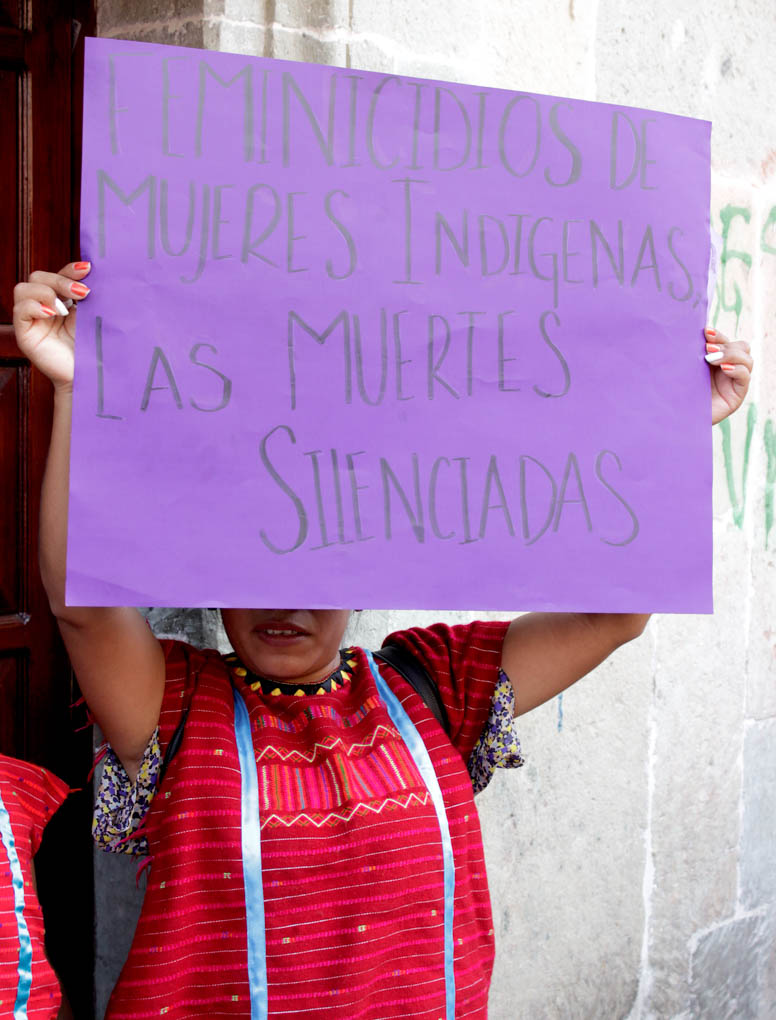 FEMINICIDIOS DE
MUJERES INDIGENAS,
LAS MUERTES
SILENCIADAS